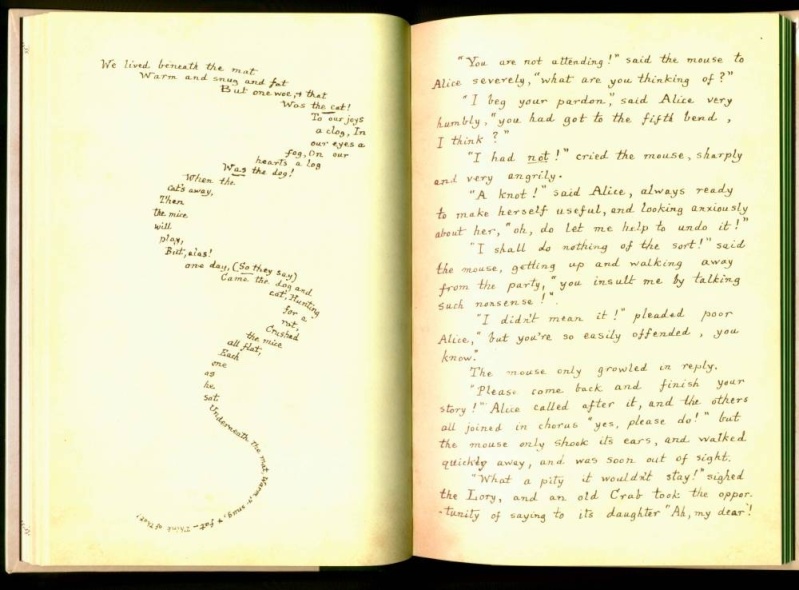 We lived beneath the mat
Warm and snug and fat
But one woe, & that
Was the cat!
To our joys
a clog, In
our eyes a
fog, On our
hearts a log
Was the dog!
When the
cat's away,
Then
the mice
will
play,
But, alas!
one day, (So they say)
Came the dog and
cat, Hunting
for a
rat,
Crushed
the mice
all flat;
Each
one
as
he
sat
Underneath the mat, Warm, & snug, & fat – Think of that!
"You are not attending!" said the mouse to
Alice severely, "what are you thinking of?"
"I beg your pardon," said Alice very
humbly, "you had got to the fifth bend,
I think?"
"I had not!" cried the mouse, sharply
and very angrily.
"A knot!" said Alice, always ready
to make herself useful, and looking anxiously
about her, "oh, do let me help to undo it!"
"I shall do nothing of the sort!" said
the mouse, getting up and walking away
from the party, "you insult me by talking
such nonsense!".
"I didn't mean it!" pleaded poor
Alice, "but you're so easily offended, you
know."
The mouse only growled in reply.
"Please come back and finish your
story!" Alice called after it, and the others
all joined in chorus "yes, please do!" but
the mouse only shook its ears, and walked
quickly away, and was soon out of sight.
"What a pity it wouldn't stay!" sighed
the Lory, and an old Crab took the oppor-
-tunity of saying to its daughter "Ah, my dear!